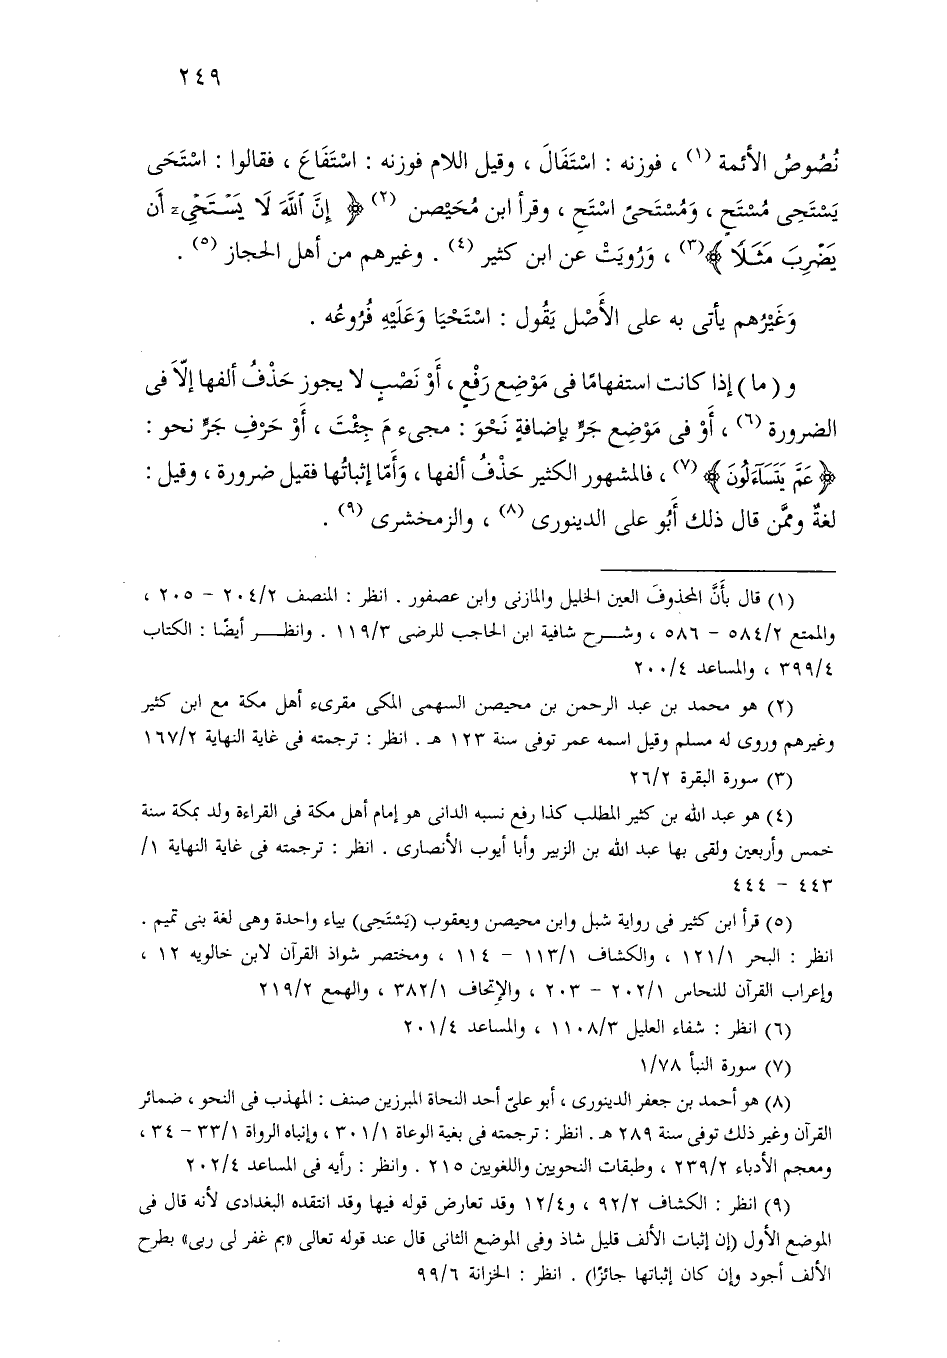 ٢٤٩
نُصُوصُ الأئمة (١) ، فوزنه : اسْتَفَالَ ، وقيل اللام فوزنه : اسْتَفَاعَ ، فقالوا : اسْتَحَى
يَسْتَحِى مُسْتَحٍ ، وَمُسْتَحىً اسْتَحِ ، وقرأ ابن مُحَيْصن (٢) ﴿ إِنَّ ٱللَّهَ لَا يَسْتَحْيِۦ أَن
يَضْرِبَ مَثَلًا ﴾(٣) ، وَرُويَتْ عن ابن كثير (٤) . وغيرهم من أهل الحجاز (٥) .
وَغَيْرُهم يأتى به على الأَصْل يَقُول : اسْتَحْيَا وَعَلَيْهِ فُرُوعُه .
و ( ما ) إذا كانت استفهامًا فى مَوْضِع رَفْعٍ ، أَوْ نَصْبٍ لا يجوز حَذْفُ ألفها إلّاَ فى
الضرورة (٦) ، أَوْ فى مَوْضِع جَرٍّ بإضافةٍ نَحْوَ : مجىء مَ جِئْتَ ، أَوْ حَرْفِ جَرٍّ نحو :
﴿ عَمَّ يَتَسَآءَلُونَ ﴾ (٧) ، فالمشهور الكثير حَذْفُ ألفها ، وَأَمّا إثباتُها فقيل ضرورة ، وقيل :
لغةٌ وممَّن قال ذلك أَبُو على الدينورى (٨) ، والزمخشرى (٩) .
(١) قال بأَنَّ المحذوفَ العين الخليل والمازنى وابن عصفور . انظر : المنصف ٢٠٤/٢ - ٢٠٥ ،
والممتع ٥٨٤/٢ - ٥٨٦ ، وشـــرح شافية ابن الحاجب للرضى ١١٩/٣ . وانظـــر أيضًا : الكتاب
٣٩٩/٤ ، والمساعد ٢٠٠/٤
(٢) هو محمد بن عبد الرحمن بن محيصن السهمى المكى مقرىء أهل مكة مع ابن كثير
وغيرهم وروى له مسلم وقيل اسمه عمر توفى سنة ١٢٣ هـ . انظر : ترجمته فى غاية النهاية ١٦٧/٢
(٣) سورة البقرة ٢٦/٢
(٤) هو عبد الله بن كثير المطلب كذا رفع نسبه الدانى هو إمام أهل مكة فى القراءة ولد بمكة سنة
خمس وأربعين ولقى بها عبد الله بن الزبير وأبا أيوب الأنصارى . انظر : ترجمته فى غاية النهاية ١/
٤٤٣ - ٤٤٤
(٥) قرأ ابن كثير فى رواية شبل وابن محيصن ويعقوب (يَسْتَحِى) بياء واحدة وهى لغة بنى تميم .
انظر : البحر ١٢١/١ ، والكشاف ١١٣/١ - ١١٤ ، ومختصر شواذ القرآن لابن خالويه ١٢ ،
وإعراب القرآن للنحاس ٢٠٢/١ - ٢٠٣ ، والإتحاف ٣٨٢/١ ، والهمع ٢١٩/٢
(٦) انظر : شفاء العليل ١١٠٨/٣ ، والمساعد ٢٠١/٤
(٧) سورة النبأ ١/٧٨
(٨) هو أحمد بن جعفر الدينورى ، أبو علىّ أحد النحاة المبرزين صنف : المهذب فى النحو ، ضمائر
القرآن وغير ذلك توفى سنة ٢٨٩ هـ . انظر : ترجمته فى بغية الوعاة ٣٠١/١ ، وإنباه الرواة ٣٣/١ - ٣٤ ،
ومعجم الأدباء ٢٣٩/٢ ، وطبقات النحويين واللغويين ٢١٥ . وانظر : رأيه فى المساعد ٢٠٢/٤
(٩) انظر : الكشاف ٩٢/٢ ، و١٢/٤ وقد تعارض قوله فيها وقد انتقده البغدادى لأنه قال فى
الموضع الأول (إن إثبات الألف قليل شاذ وفى الموضع الثانى قال عند قوله تعالى «بم غفر لى ربى» بطرح
الألف أجود وإن كان إثباتها جائزًا) . انظر : الخزانة ٩٩/٦